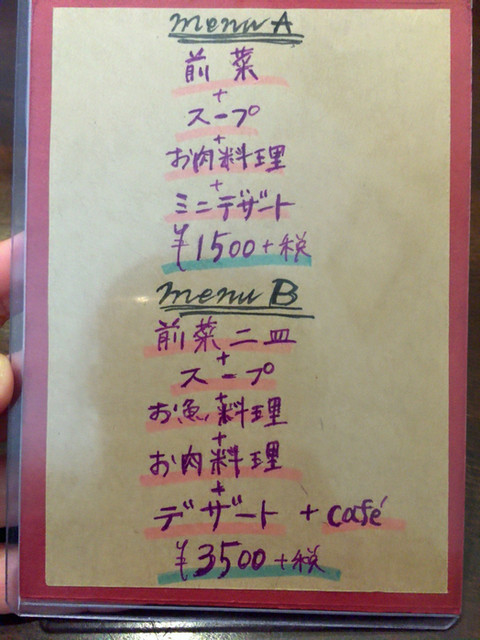 menu A
前菜
+
スープ
+
お肉料理
+
ミニデザート
¥1500+税
menu B
前菜二皿
+
スープ
+
お魚料理
+
お肉料理
+
デザート + café
¥3500+税